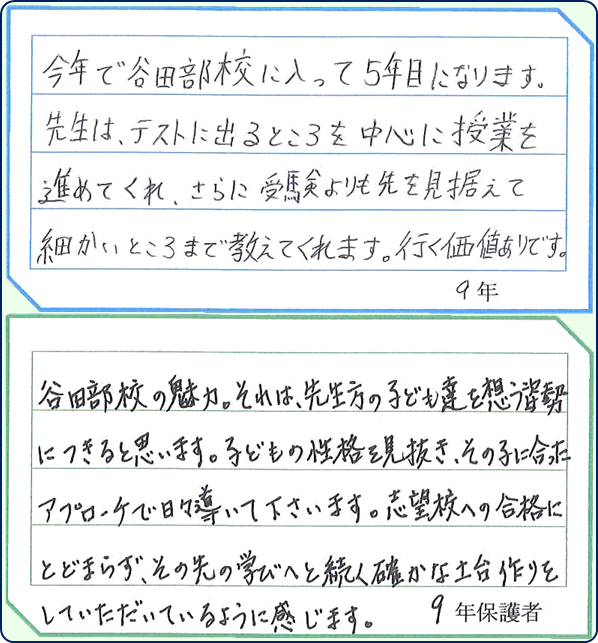 今年で谷田部校に入って5年目になります。
先生は、テストに出るところを中心に授業を
進めてくれ、さらに受験よりも先を見据えて
細かいところまで教えてくれます。行く価値ありです。
9年
谷田部校の魅力。それは、先生方の子ども達を想う姿勢
につきると思います。子どもの性格を見抜き、その子に合った
アプローチで日々導いて下さいます。志望校への合格に
とどまらず、その先の学びへと続く確かな土台作りを
していただいているように感じます。
9年保護者